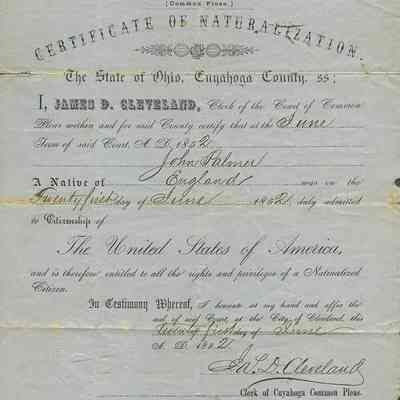 (Common Pleas.)
CERTIFICATE OF NATURALIZATION.
The State of Ohio, Cuyahoga County, ss:
I, JAMES D. CLEVELAND, Clerk of the Court of Common
Pleas within and for said County certify that at the June
Term of said Court, A. D. 1852
John Palmer
A Native of England was on the
Twenty first day of June 1852 duly admitted
to Citizenship of
The United States of America,
and is therefore entitled to all the rights and privileges of a Naturalized
Citizen.
In Testimony Whereof, I hereunto set my hand and affix the
seal of said Court, at the City of Cleveland, this
twenty first day of June
A. D. 1852
Jas. D. Cleveland
Clerk of Cuyahoga Common Pleas.